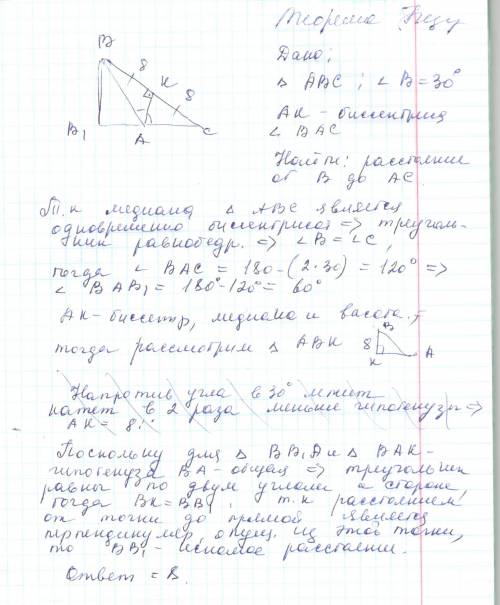 Теорема
Дано:
Δ ABC ; ∠ B = 30°
AK - биссектриса
∠ BAC
Найти: расстояние
от B до AC.
B
8
K
8
B₁
A
C
Т.к медиана Δ ABC является
одновременно биссектрисой => треуголь-
ник равнобедр. => ∠B = ∠C,
тогда ∠ BAC = 180 - (2·30) = 120° =>
∠ BAB₁ = 180° - 120° = 60°
AK - биссектр, медиана и высота.
тогда рассмотрим Δ ABK
B
8
K
A
Напротив угла в 30° лежит
катет в 2 раза меньше гипотенузы =>
AK = 8
Поскольку для Δ BB₁A и Δ BAK -
гипотенуза BA - общая => треугольник
равны по двум углам и стороне
тогда BK = BB₁, т.к расстоянием
от точки до прямой является
перпендикуляр, опущ. из этой точки,
то BB₁ - искомое расстояние.
Ответ = 8.